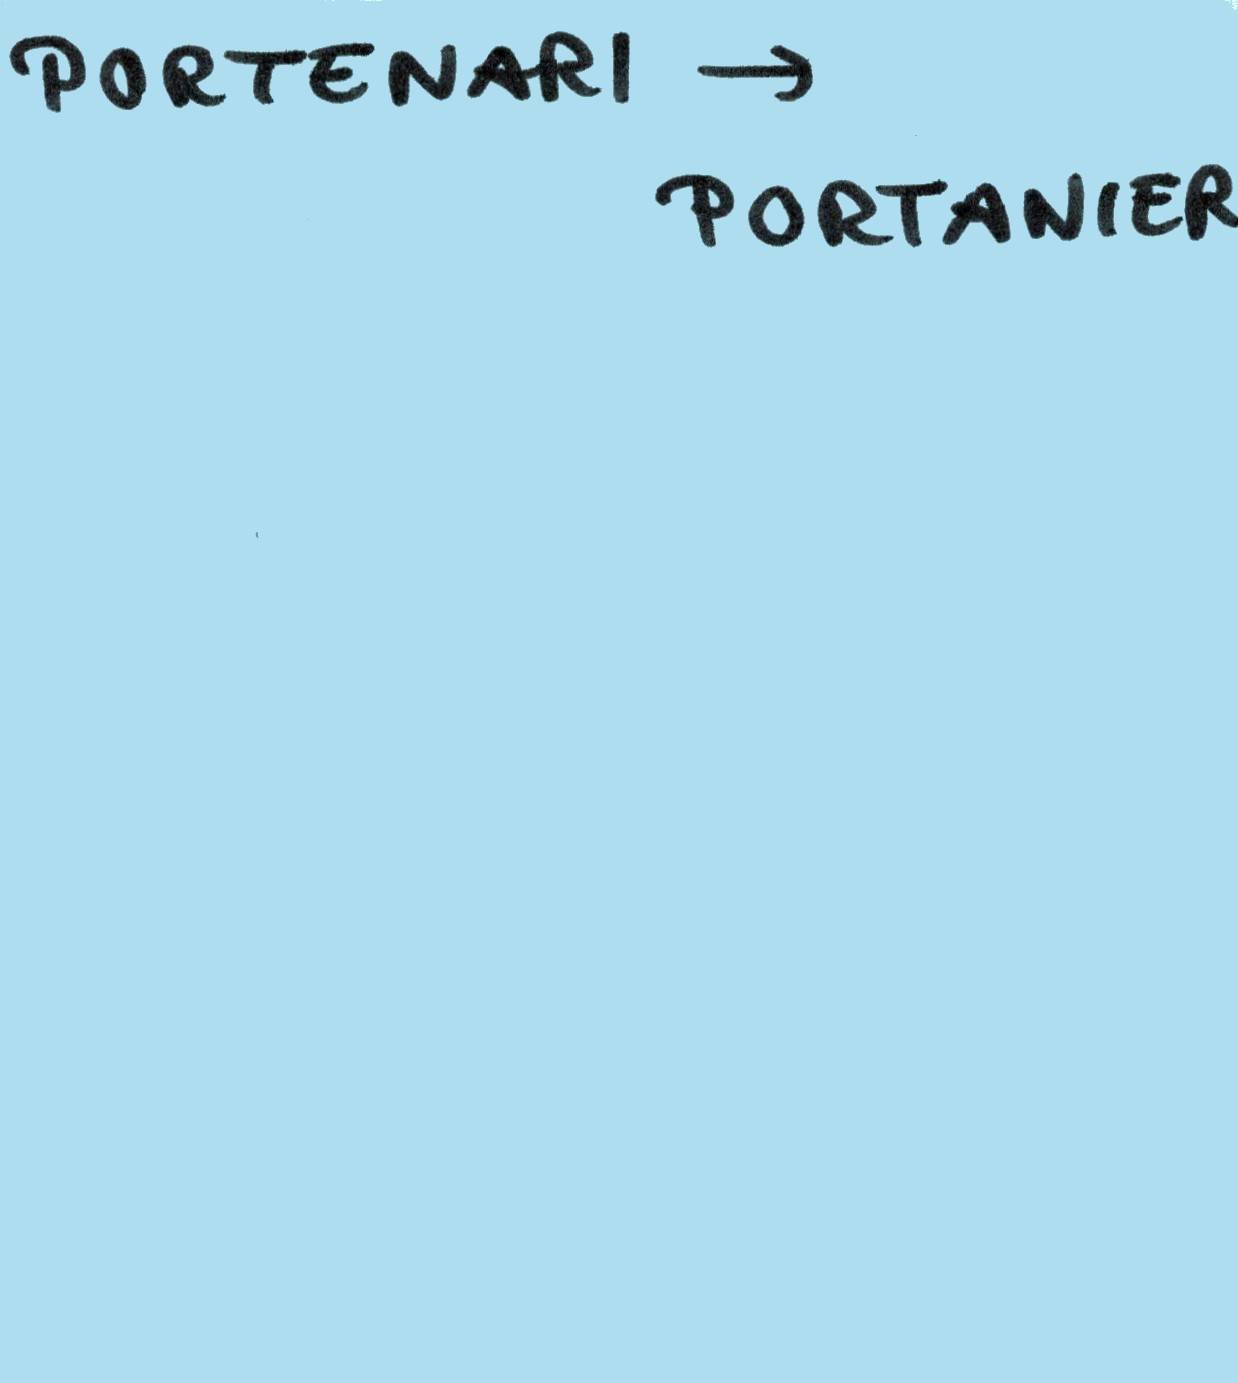 PORTENARI →
PORTANIER